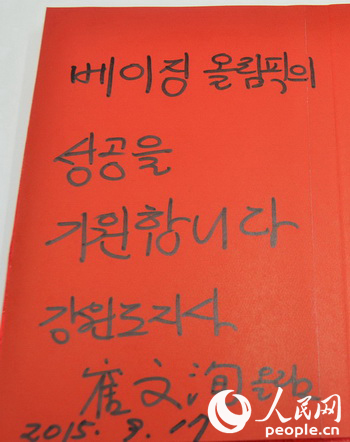 베이징 올림픽의
성공을
기원합니다
강원도지사
崔文洵 올림
2015. 9. 17
人民网
people.cn